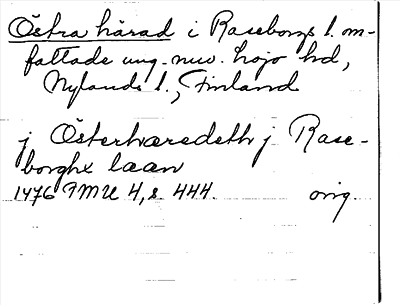 Östra härad i Raseborgs l. om-
fattade ung. nuv. Lojo hd,
Nylands l., Finland
j Österhæredeth j Rase-
borghx laan
1476 FMU 4, s. 444. orig.